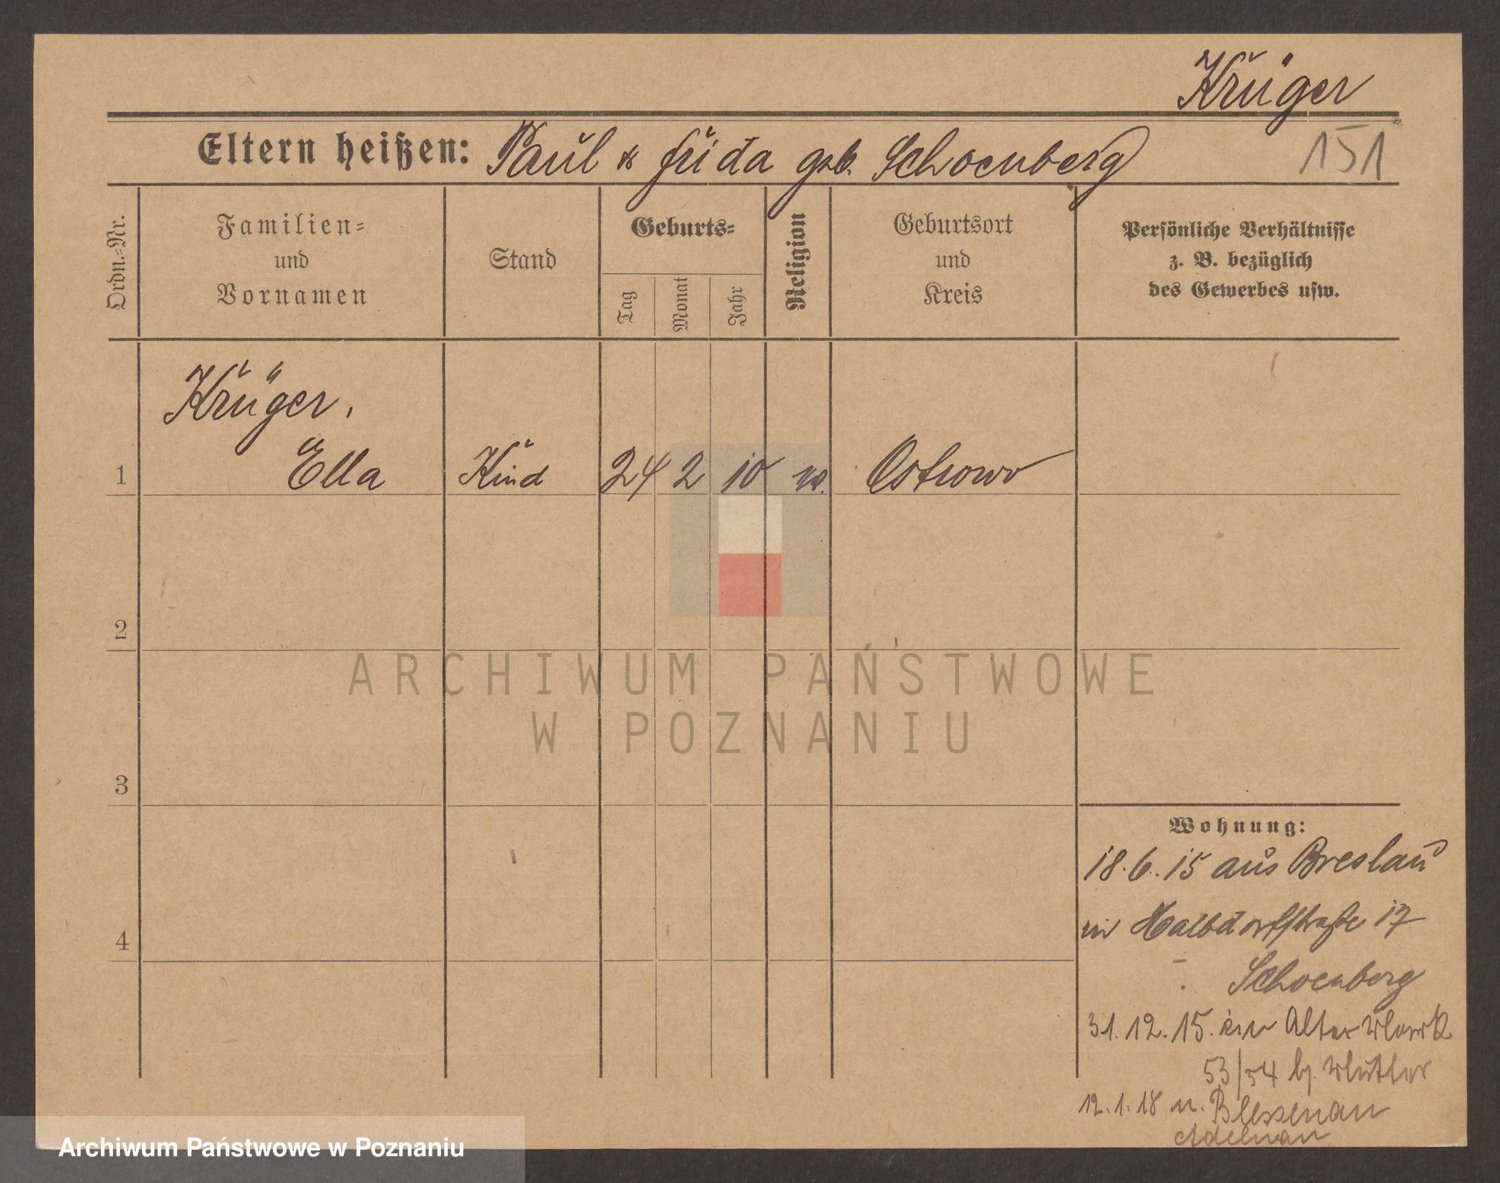 Krüger
Eltern heißen: Paul & Frida geb. Schoenberg
151
Ordn.-Nr.
Familien-
und
Vornamen
Stand
Geburts-
Tag
Monat
Jahr
Religion
Geburtsort
und
Kreis
Persönliche Verhältnisse
z. B. bezüglich
des Gewerbes usw.
Krüger,
1 Ella Kind 24 2 10 Ostrowo
2
3
4
ARCHIWUM PAŃSTWOWE
W POZNANIU
Wohnung:
18.6.15 aus Breslau
in Halbdorfstraße 17
Schoenberg
31.12.15. Alter Markt
53/54 b. Mutter
12.1.18 n.
Adelnau
Archiwum Państwowe w Poznaniu